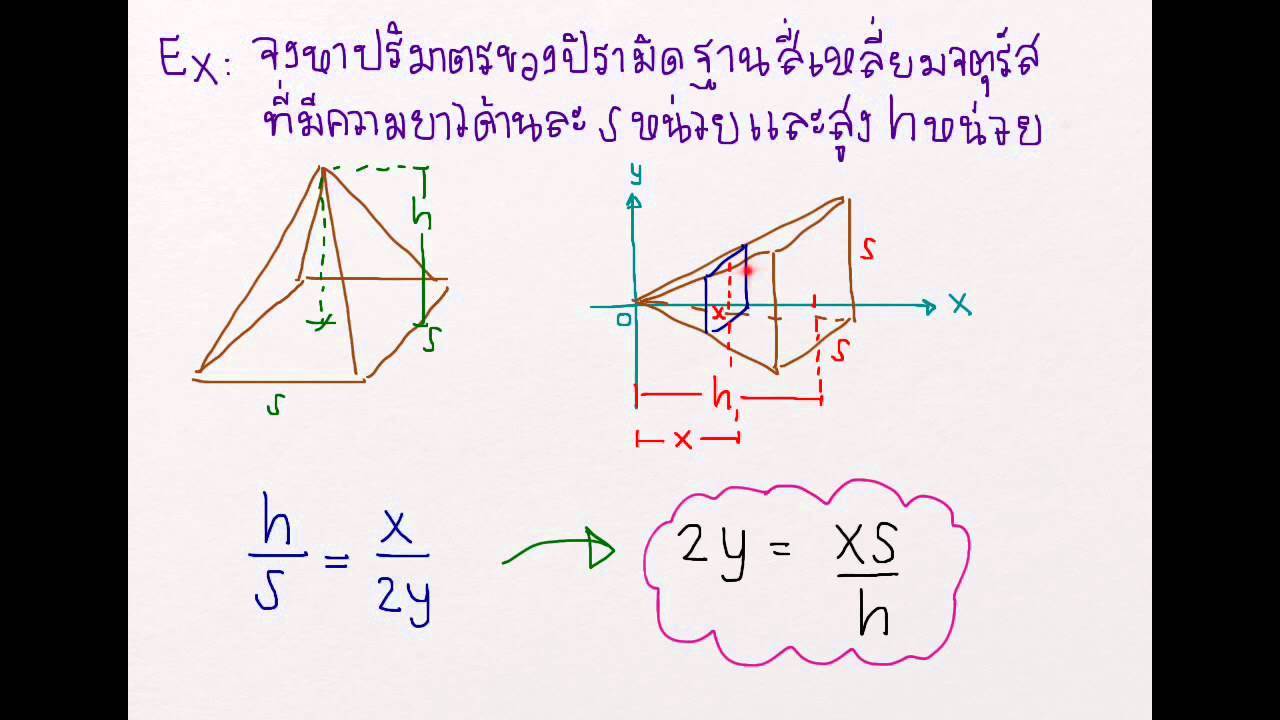 Ex: จงหาปริมาตรของปิรามิดฐานสี่เหลี่ยมจตุรัส
ที่มีความยาวด้านละ s หน่วยและสูง h หน่วย
h
s
s
y
x
0
x
s
s
h
x
h/s = x/2y
2y = xs/h